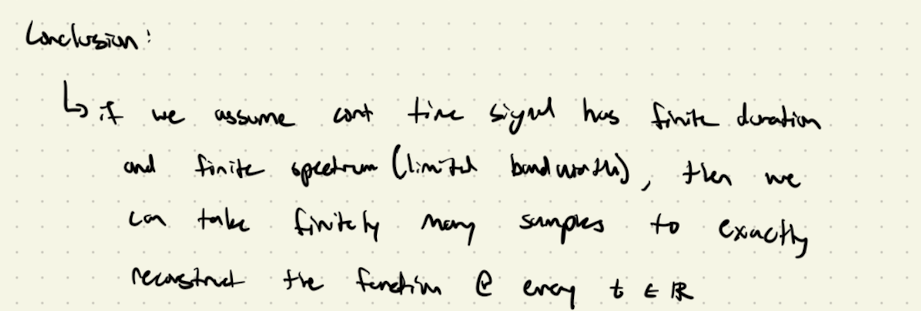 Conclusion:
↳ if we assume cont time signal has finite duration
and finite spectrum (limited bandwidth), then we
can take finitely many samples to exactly
reconstruct the function @ every t ∈ ℝ